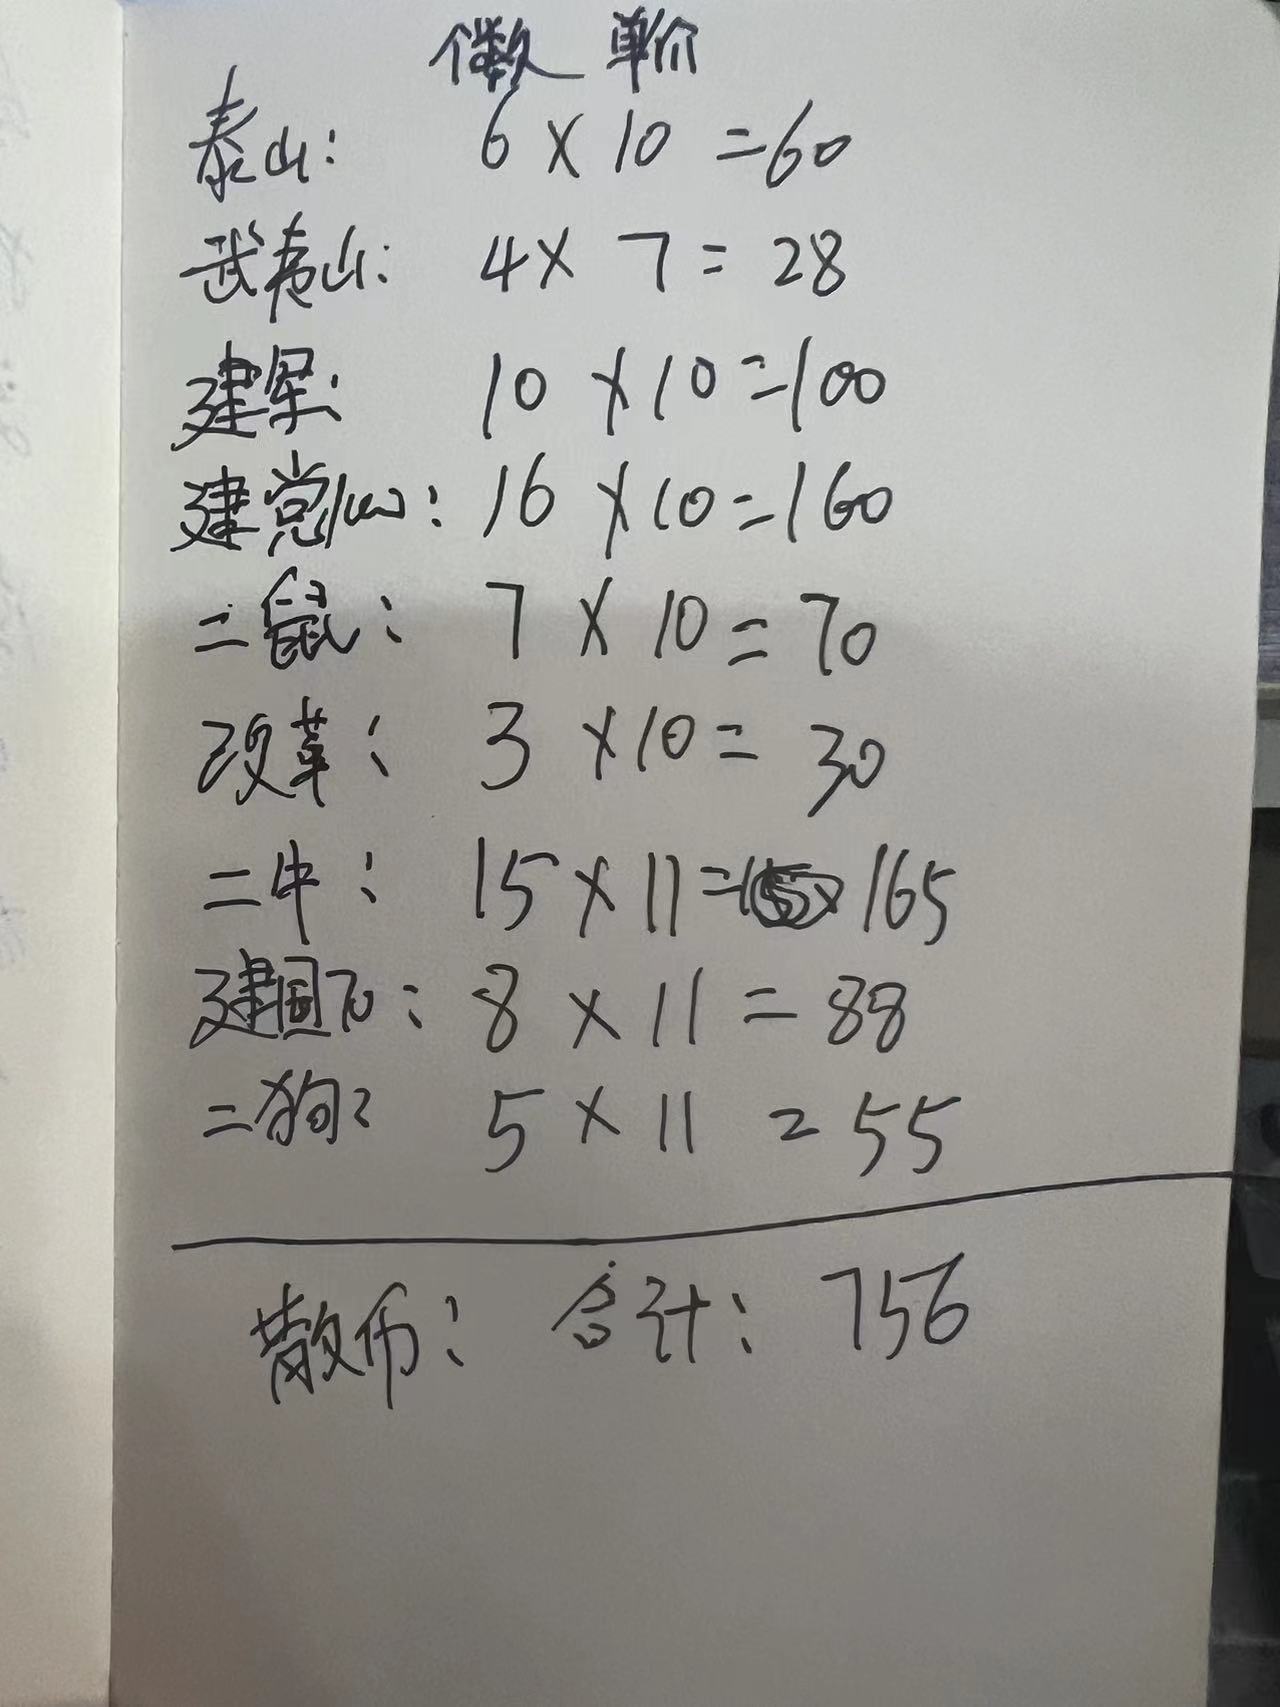 个数 单价
泰山: 6 × 10 = 60
武夷山: 4 × 7 = 28
建军: 10 × 10 = 100
建党100: 16 × 10 = 160
二鼠: 7 × 10 = 70
改革: 3 × 10 = 30
二牛: 15 × 11 = 165
建国70: 8 × 11 = 88
二狗: 5 × 11 = 55
散币: 合计: 756